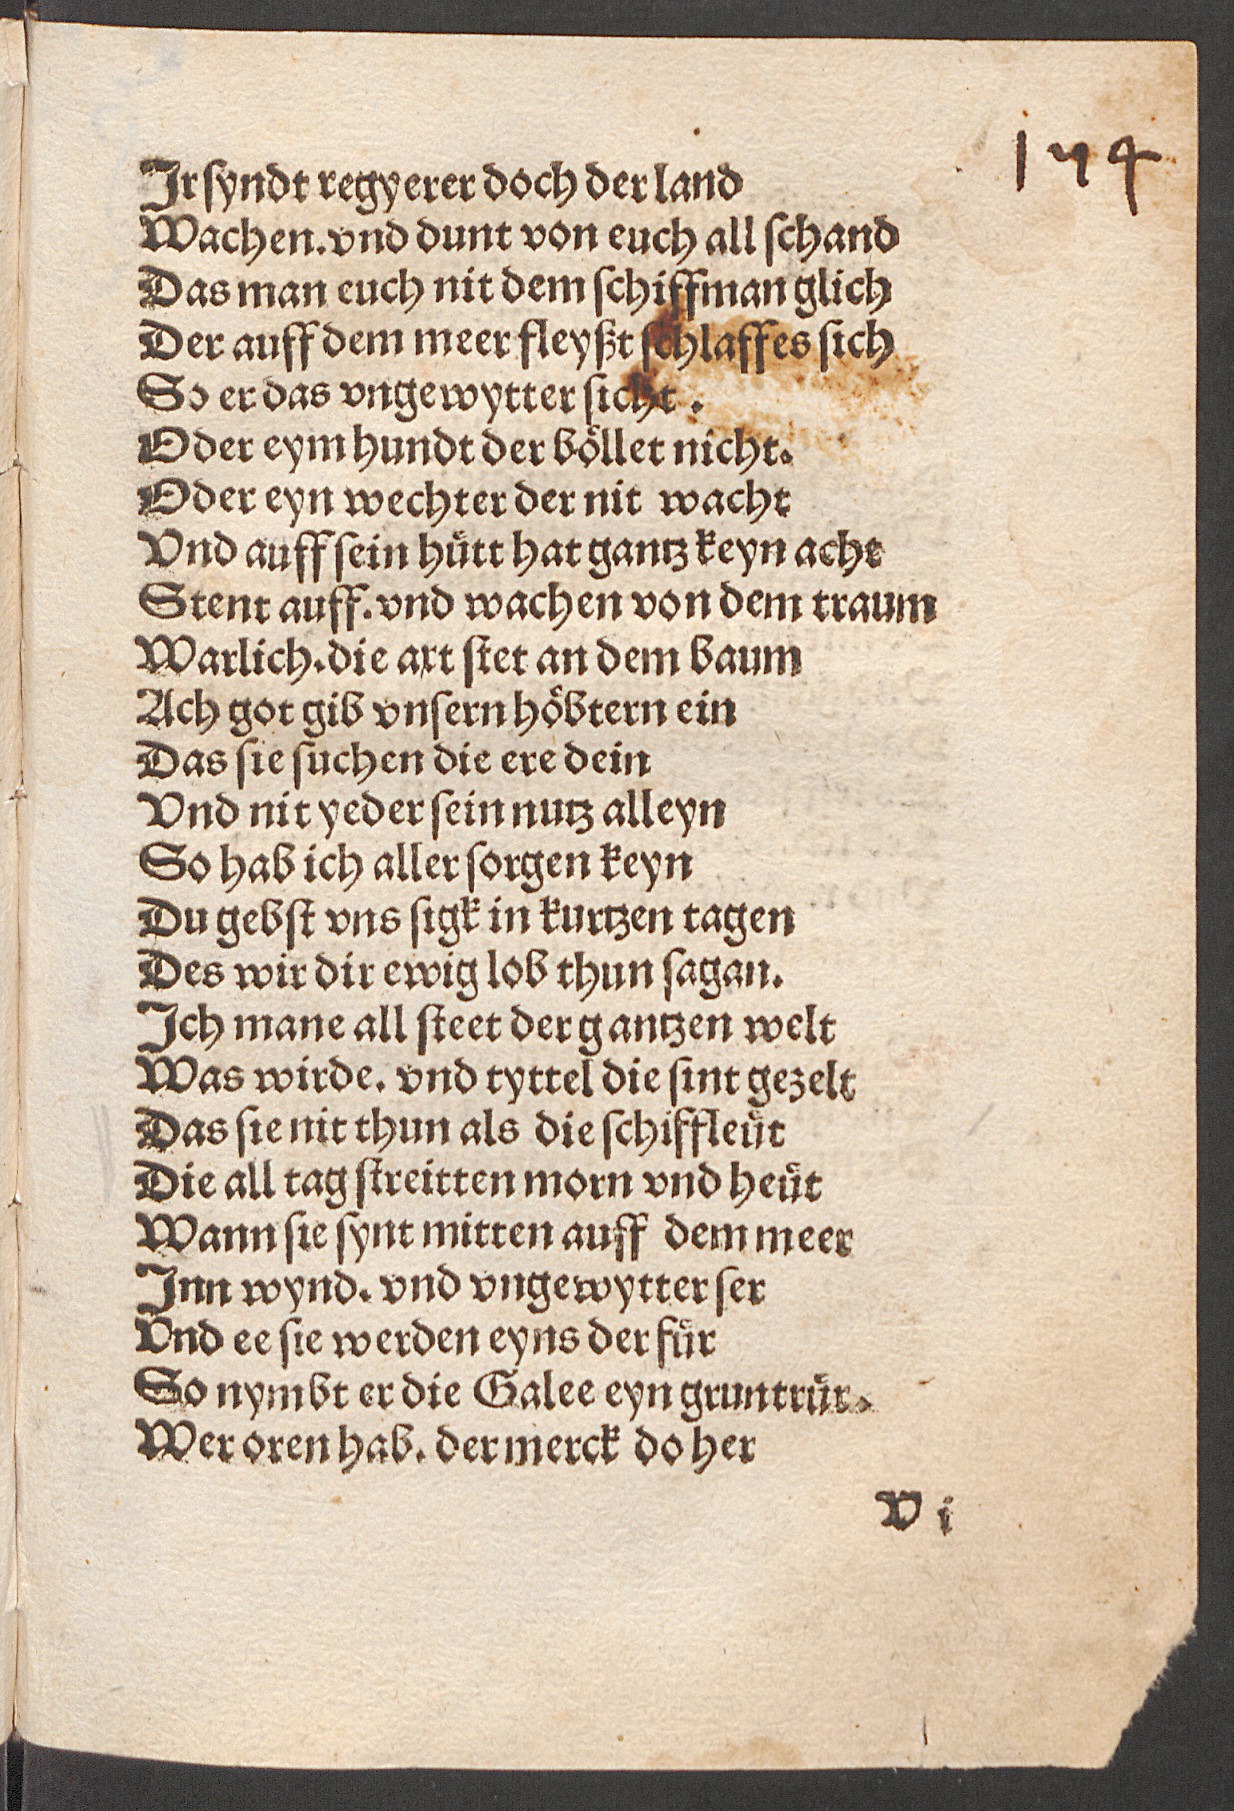 174
Ir syndt regyerer doch der land
Wachen. vnd dunt von euch all schand
Das man euch nit dem schiffman glich
Der auff dem meer fleyßt schlaffes sich
So er das vngewytter sicht.
Oder eym hundt der boͤllet nicht.
Oder eyn wechter der nit wacht
Vnd auff sein huͤtt hat gantz keyn acht
Stent auff. vnd wachen von dem traum
Warlich. die axt stet an dem baum
Ach got gib vnsern hoͤbtern ein
Das sie suchen die ere dein
Vnd nit yeder sein nutz alleyn
So hab ich aller sorgen keyn
Du gebst vns sigk in kurtzen tagen
Des wir dir ewig lob thun sagan.
Ich mane all steet der gantzen welt
Was wirde. vnd tyttel die sint gezelt
Das sie nit thun als die schiffleuͤt
Die all tag streitten morn vnd heuͤt
Wann sie synt mitten auff dem meer
Inn wynd. vnd vngewytter ser
Vnd ee sie werden eyns der fuͤr
So nymbt er die Galee eyn gruntruͤr.
Wer oren hab. der merck do her
V i